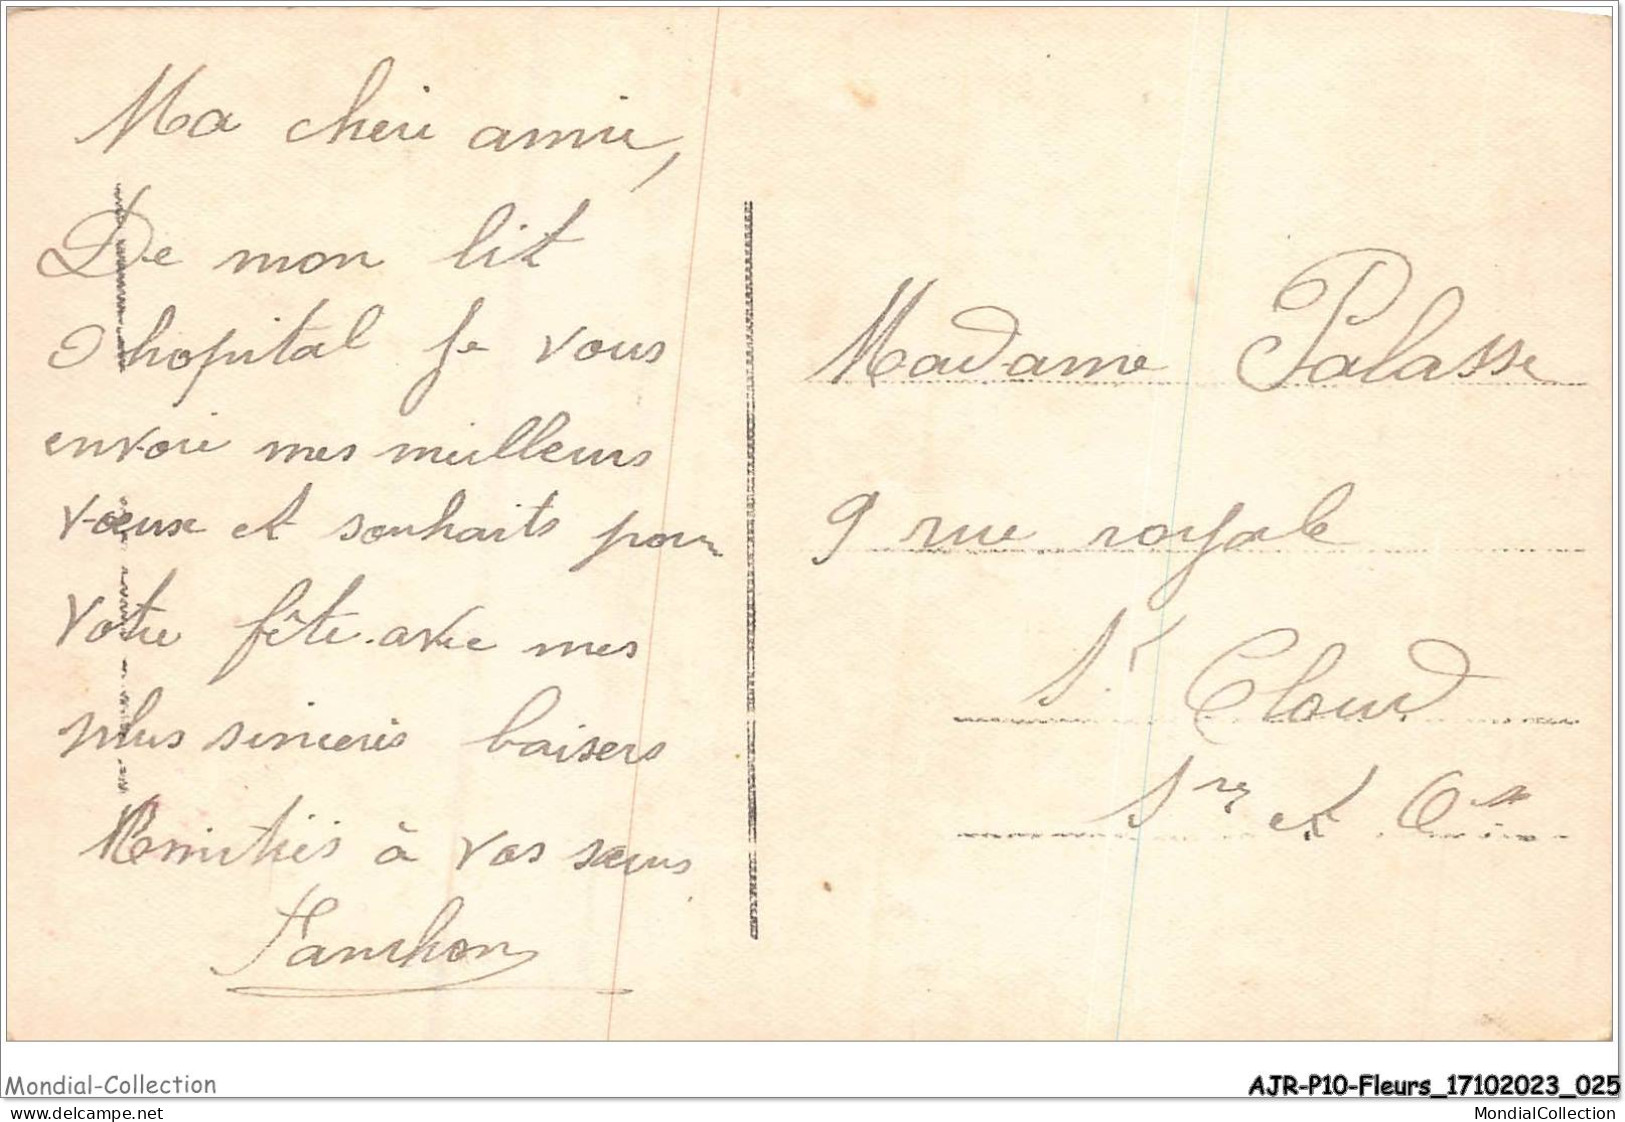 Ma chèri amie,
De mon lit
d hopital Je vous
envoie mes meilleurs
vœux et souhaits pour
Votre fête avec mes
plus sincères baisers
Amitiés à vos sœurs
Fanchon
Madame Palasse
9 rue royale
St Cloud
Sne et Ose
Mondial-Collection
AJR-P10-Fleurs_17102023_025
delcampe.net
MondialCollection